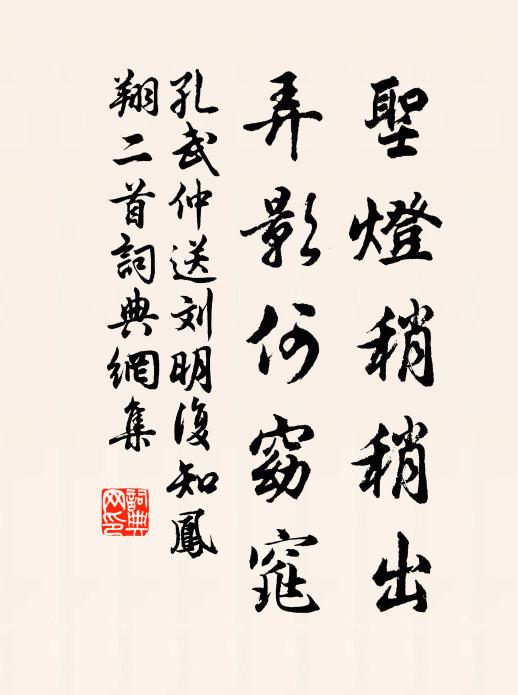 聖燈稍稍出
弄影何窈窕
孔武仲送刘明復知鳳
翔二首詞典網集
詞典
网印